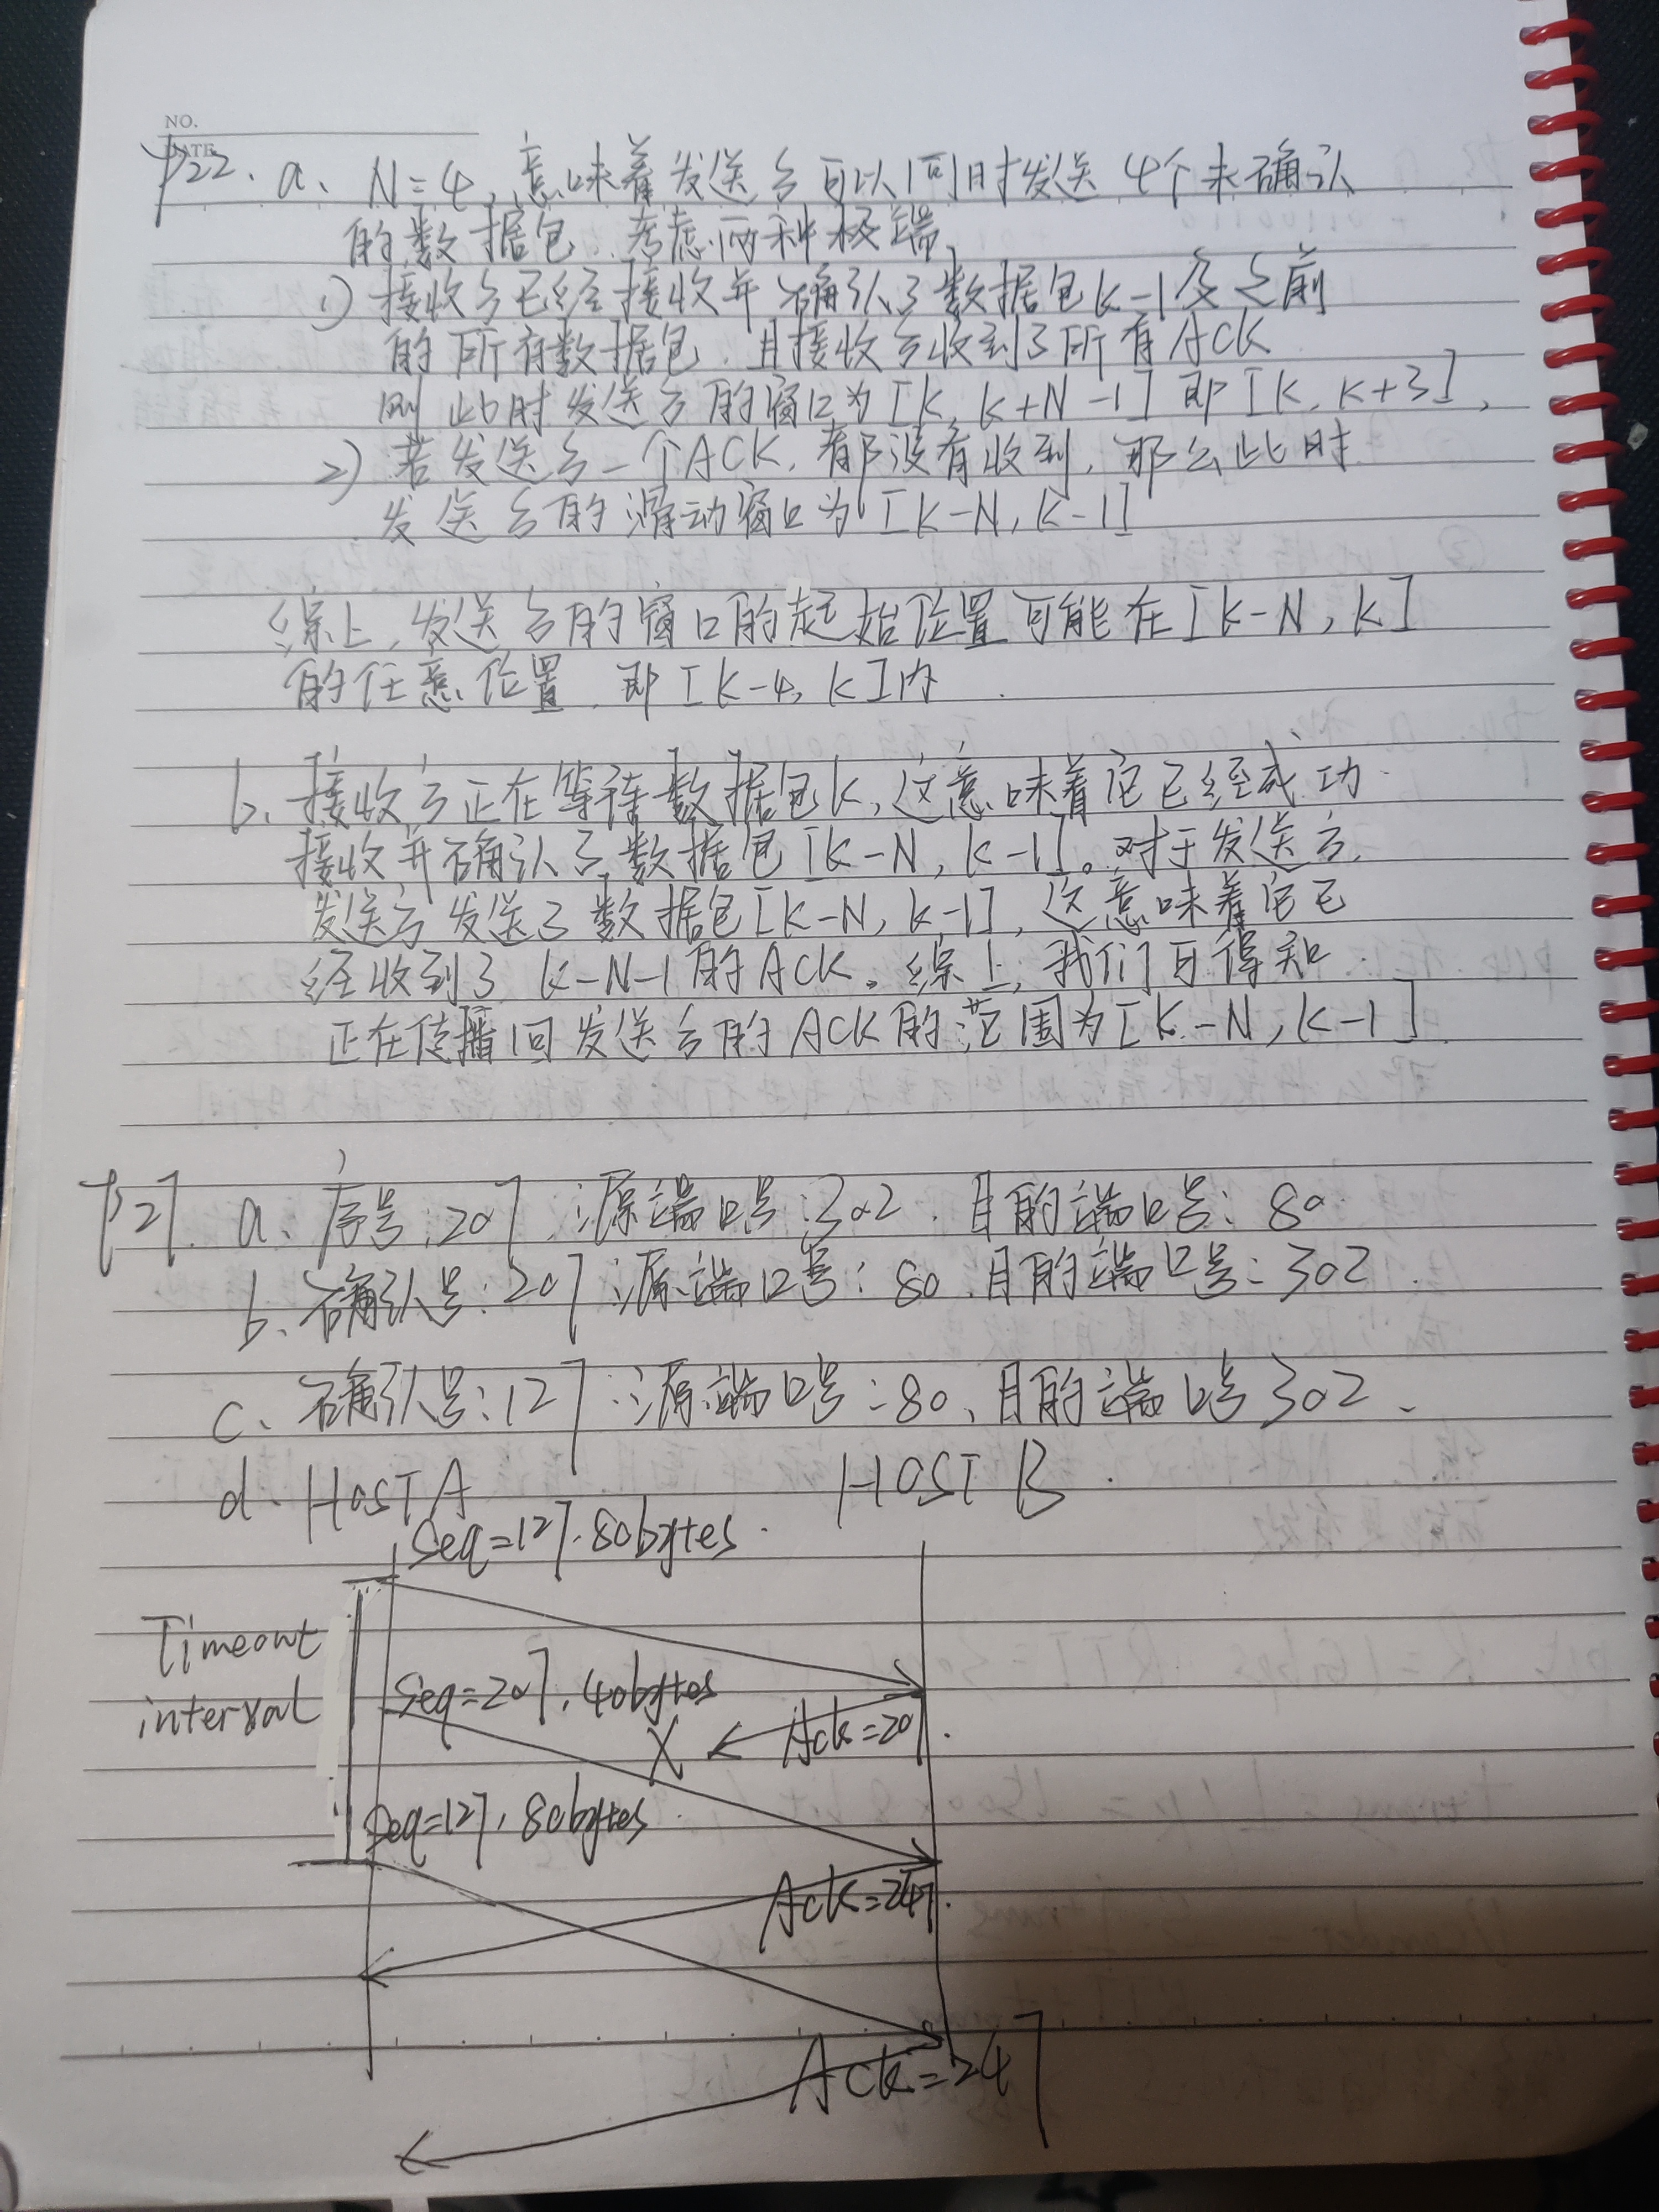 NO.
DATE
P22. a、N=4,意味着发送方可以同时发送4个未确认
的数据包.考虑两种极端,
1) 接收方已经接收并确认了数据包k-1及之前
的所有数据包.且接收方收到了所有ACK
则此时发送方的窗口为[k, k+N-1] 即[k, k+3],
2) 若发送方一个ACK,都没有收到,那么此时
发送方的滑动窗口为[k-N, k-1]
综上,发送方的窗口的起始位置可能在[k-N, k]
的任意位置.即[k-4, k]内.
b. 接收方正在等待数据包k,这意味着它已经成功
接收并确认了数据包[k-N, k-1]。对于发送方,
发送方发送了数据包[k-N, k-1],这意味着它已
经收到了 k-N-1的ACK。综上,我们可得知
正在传播回发送方的ACK的范围为[k-N, k-1]
P27. a、序号:207 源端口号:302.目的端口号:80
b、确认号:207 源端口号:80.目的端口号:302.
c、确认号:127 源端口号:80、目的端口号302、
d、Host A Host B
Seq=127.80bytes.
Timeout
interval
Seq=207,40bytes
X Ack=207
Seq=127,80bytes.
Ack=247.
Ack=247